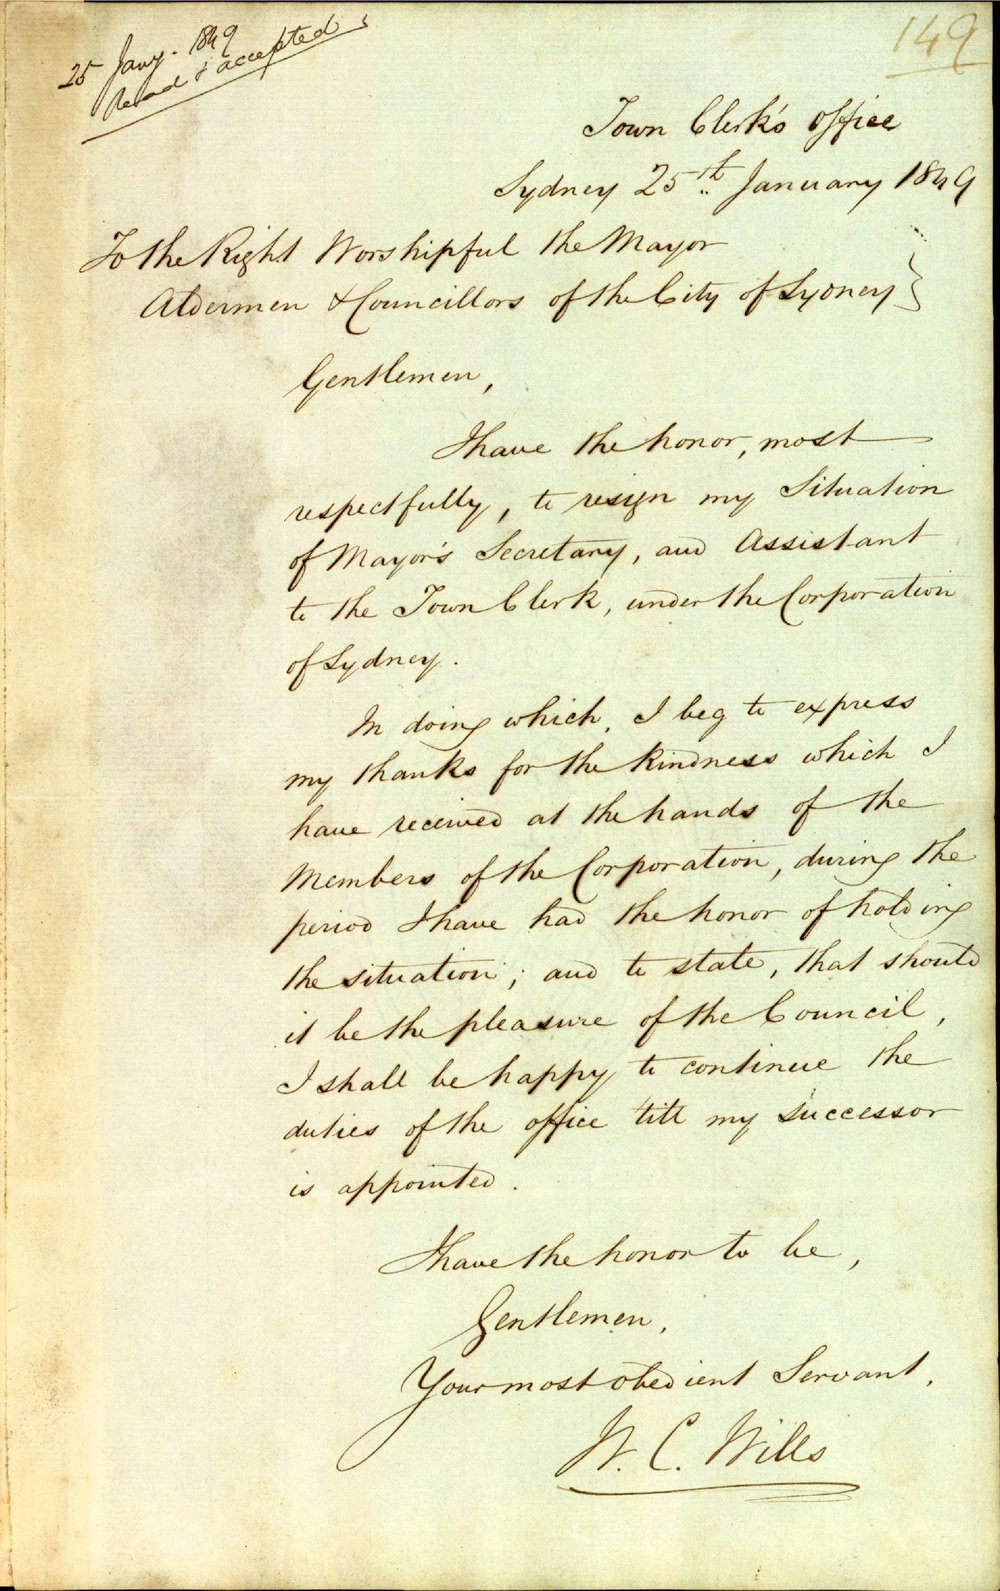 25 Jany. 1849
Read & accepted
149
Town Clerk's Office
Sydney 25th January 1849
To the Right Worshipful the Mayor
Aldermen & Councillors of the City of Sydney }
Gentlemen,
I have the honor, most
respectfully, to resign my Situation
of Mayor's Secretary, and Assistant
to the Town Clerk, under the Corporation
of Sydney.
In doing which, I beg to express
my thanks for the kindness which I
have received at the hands of the
Members of the Corporation, during the
period I have had the honor of holding
the situation; and to state, that should
it be the pleasure of the Council,
I shall be happy to continue the
duties of the office till my successor
is appointed.
I have the honor to be,
Gentlemen,
Your most obedient Servant,
W. C. Wills